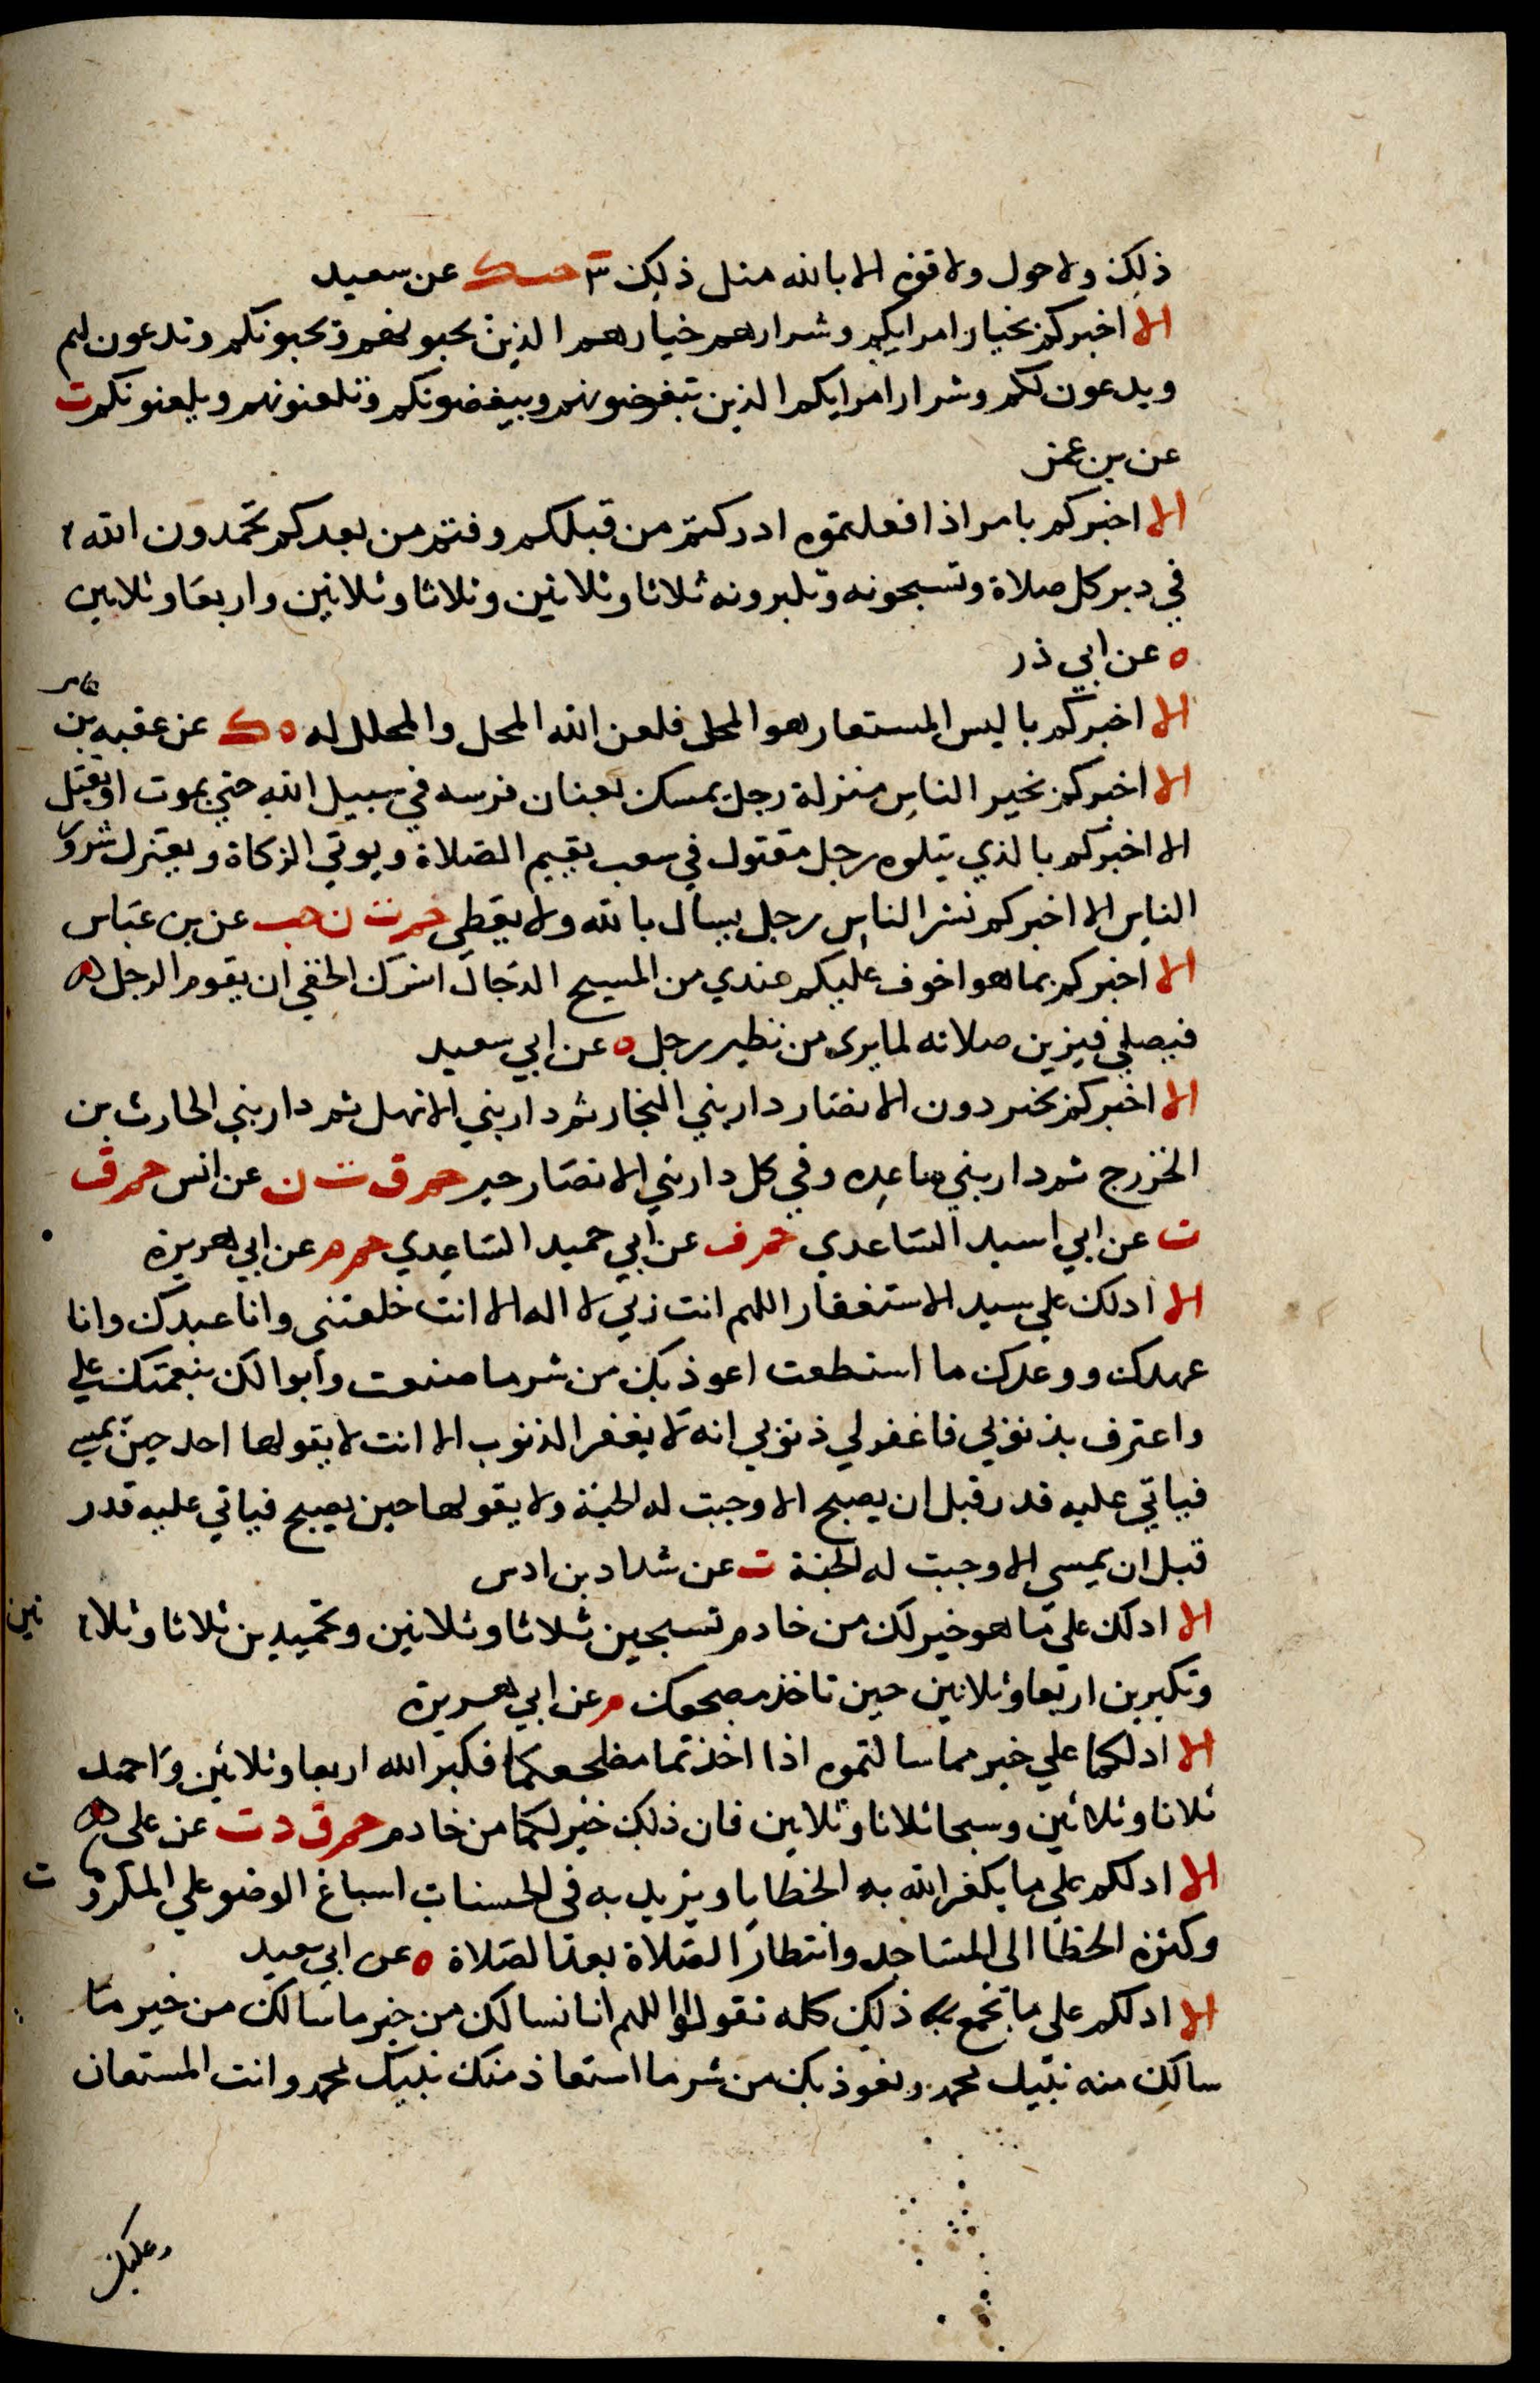 ذلك ولا حول ولا قوه الا بالله مثل ذلك ٣ حب ك عن سعيد
الا اخبركم بخيار امرايكم وشرارهم خيارهم الذين تحبونهم وتحبونكم وتدعون لهم
ويدعون لكم وشرار امرايكم الذين تبغضونهم ويبغضونكم وتلعنونهم ويلعنونكم ت
عن بن عمر
الا اخبركم بامر اذا فعلتموه ادركتم من قبلكم وفتم من بعدكم تحمدون الله
في دبر كل صلاة وتسبحونه وتكبرونه ثلاثا وثلاثين وثلاثا وثلاثين واربعا وثلاثين
ه عن ابي ذر
الا اخبركم باليس المستعار هو المحل فلعن الله المحل والمحلل له ه ك عن عقبه بن عامر
الا اخبركم بخير الناس منزلة رجل يمسك بعنان فرسه في سبيل الله حتي يموت او يقتل
الا اخبركم بالذي يتلوه رجل مقتول في سعب يقيم الصلاة ويوتي الزكاة ويعتزل شرور
الناس الا اخبركم بشر الناس رجل يسال بالله ولا يعطي حم ت ن حب عن بن عباس
الا اخبركم بما هو اخوف عليكم عندي من المسيح الدجال الشرك الخفي ان يقوم الرجل
فيصلي فيزين صلاته لما يرى من نظير رجل ه عن ابي سعيد
الا اخبركم بخير دون الانصار دار بني النجار ثم دار بني الانهل ثم دار بني الحارث بن
الخزرج ثم دار بني ساعده وفي كل دار بني الانصار خير حم ق ت ن عن انس حم ق
ت عن ابي اسيد الساعدي حم ق عن ابي حميد الساعدي حم م عن ابي هريرة
الا ادلك علي سيد الاستغفار اللهم انت ربي لا اله الا انت خلقتني وانا عبدك وانا
عهدك ووعدك ما استطعت اعوذ بك من شر ما صنعت وابوا لك بنعمتك علي
واعترف بذنوبي فاغفر لي ذنوبي انه لا يغفر الذنوب الا انت لا يقولها احد حين يمسي
فياتي عليه قدر قبل ان يصبح الا وجبت له الجنة ولا يقولها حين يصبح فياتي عليه قدر
قبل ان يمسي الا وجبت له الجنة ت عن شداد بن اوس
الا ادلك علي ما هو خير لك من خادم تسبحين ثلاثا وثلاثين وتحميدين ثلاثا وثلاثين
وتكبرين اربعا وثلاثين حين تاخذ مضجعك م عن ابي هريرة
الا ادلكما علي خير مما سالتموه اذا اخذتما مضجعكما فكبر الله اربعا وثلاثين واحمد
ثلاثا وثلاثين وسبحا ثلاثا وثلاثين فان ذلك خير لكما من خادم حم ق د ت عن على
الا ادلكم علي ما يكفر الله به الخطايا ويزيد به في الحسنات اسباغ الوضو علي المكروهات
وكثره الخطا الى المساجد وانتظار الصلاة بعد الصلاة ه عن ابي سعيد
الا ادلكم علي ما يجمع ذلك كله تقولوا اللهم انا نسالك من خير ما سالك من خير ما
سالك منه نبيك محمد ونعوذ بك من شر ما استعاذ منك نبيك محمد وانت المستعان
وعليك